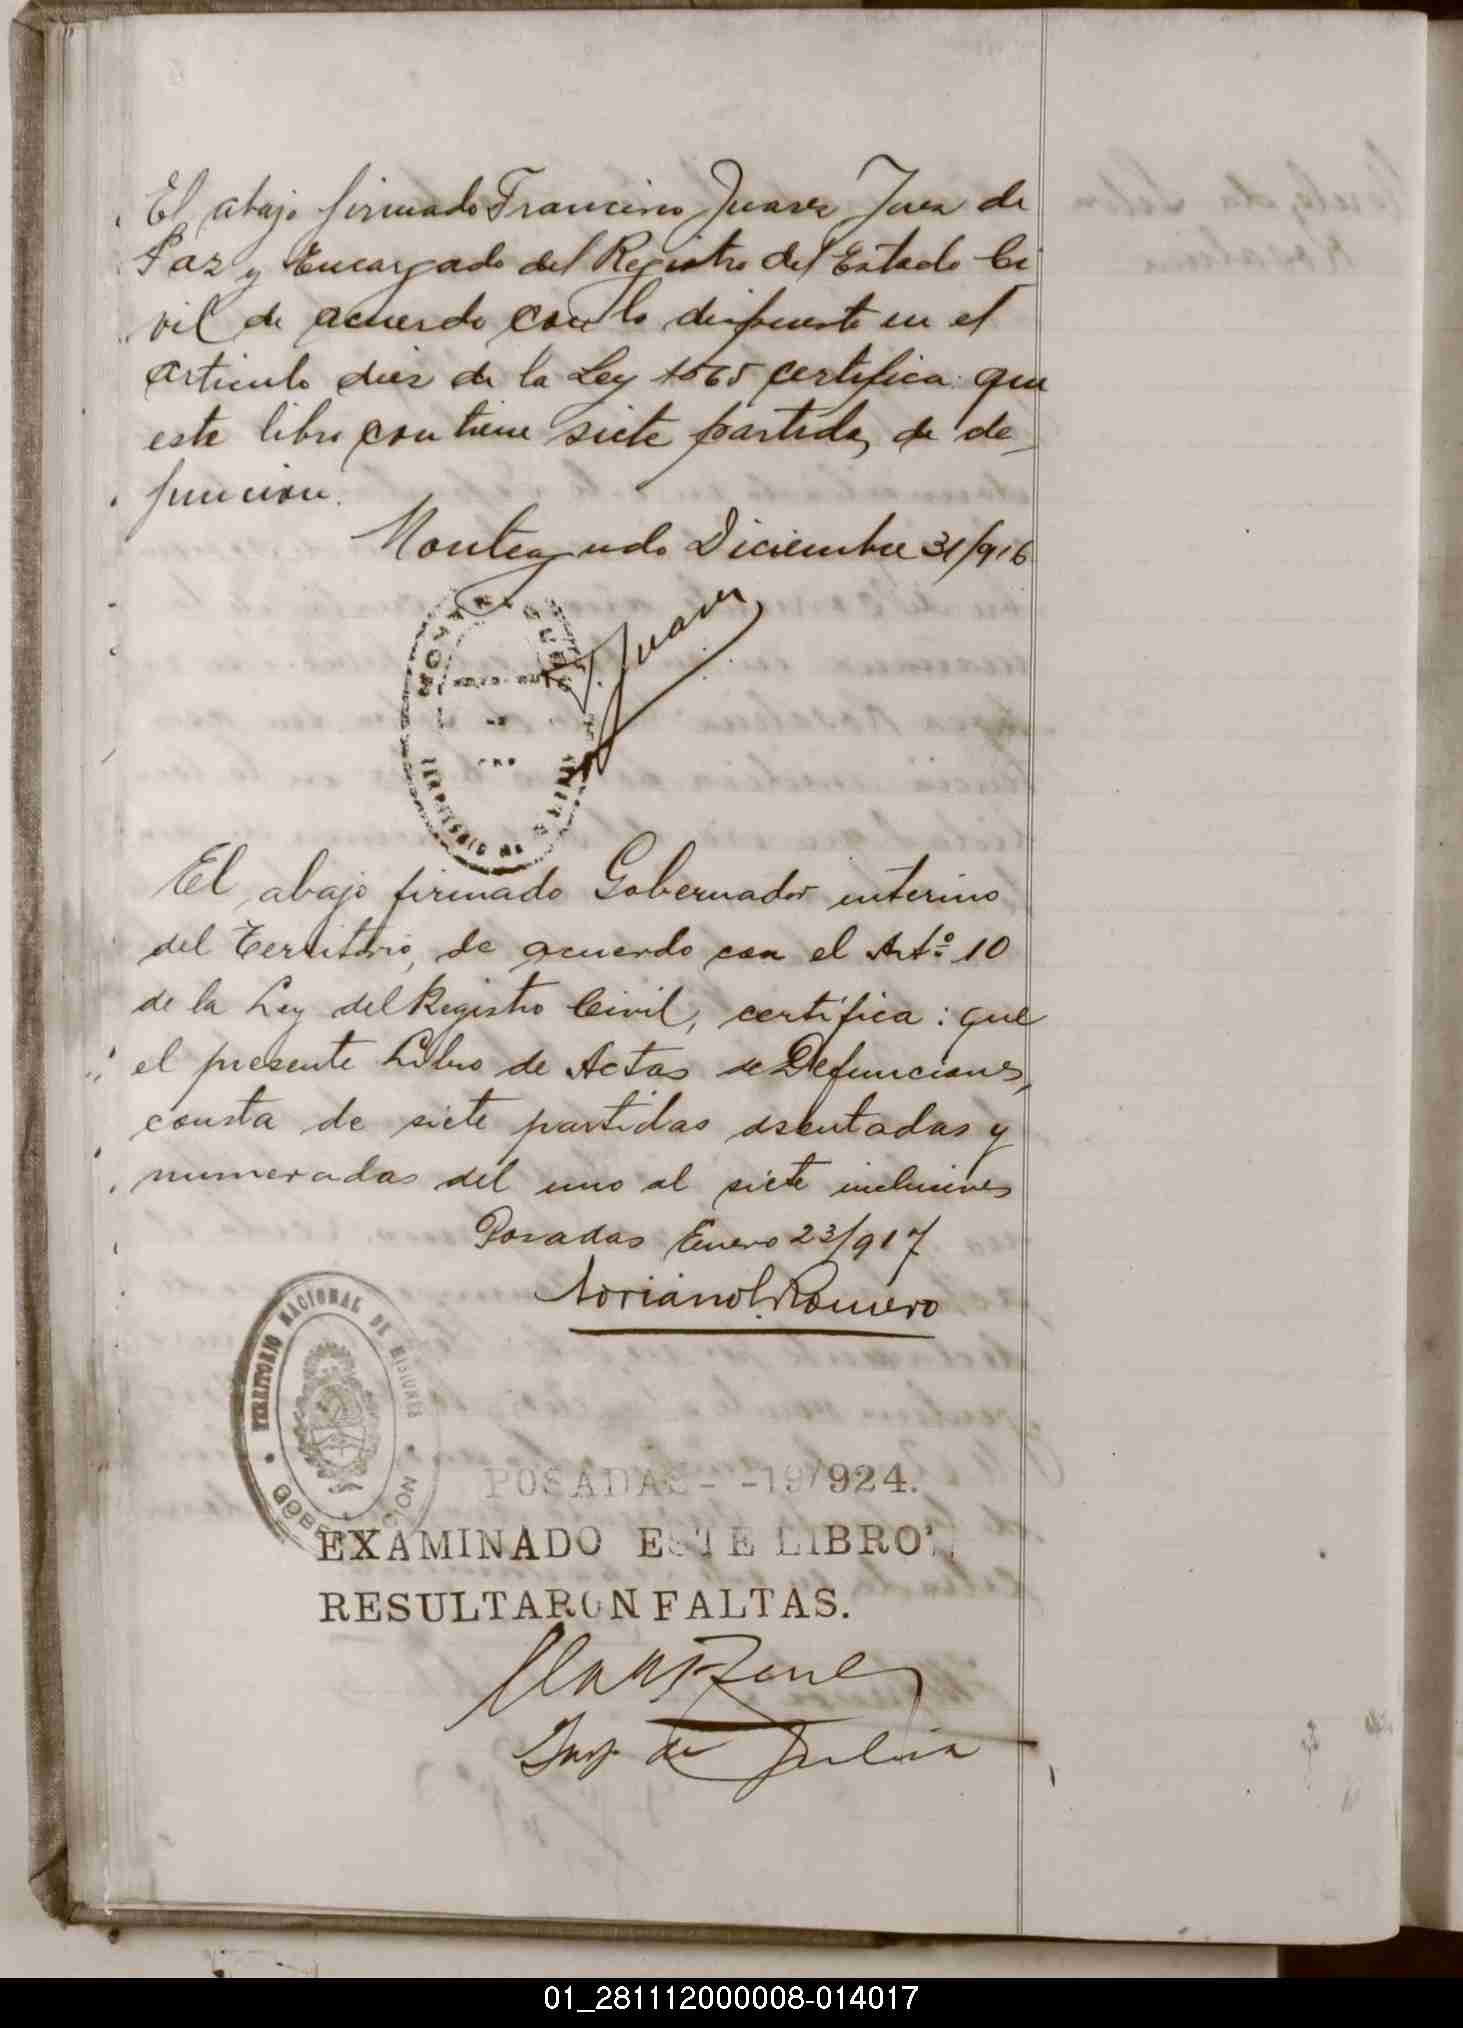 El abajo firmado Francisco Juarez Juez de
Paz y Encargado del Registro del Estado Ci
vil de acuerdo con lo dispuesto en el
articulo diez de la Ley 1565 certifica: que
este libro contiene siete partidas de de-
funcion.
Monteagudo Diciembre 31/916
F. Juarez
TERRITORIO DE
El abajo firmado Gobernador interino
del Territorio, de acuerdo con el Artº 10
de la Ley del Registro Civil, certifica: que
el presente Libro de Actas de Defunciones,
consta de siete partidas asentadas y
numeradas del uno al siete inclusives
Posadas Enero 23/917
Adriano Romero
TERRITORIO NACIONAL DE MISIONES
GOBERNACION
POSADAS - -19/924.
EXAMINADO ESTE LIBRO
RESULTARON FALTAS.
Insp. de
01_281112000008-014017